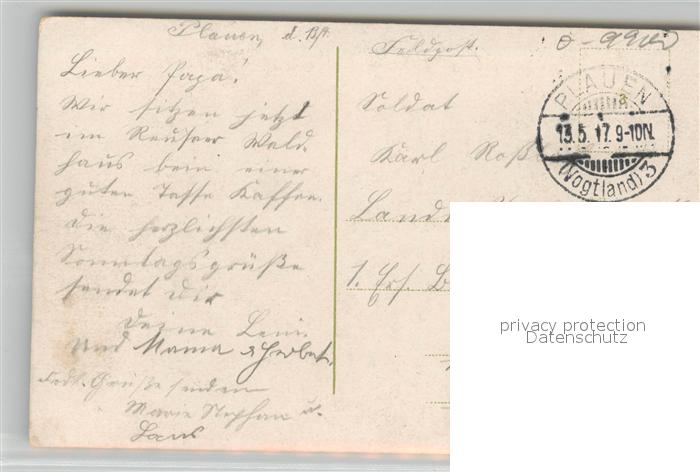 Plauen, d. 13/5.
Lieber Papa!
Wir sitzen jetzt
im Reusaer Wald
haus beim einer
guten Tasse Kaffee.
Die herzlichsten
Sonntagsgrüße
sendet Dir
Deine Leni
Und Mama & Herbert.
Herzl. Grüße senden
Marie Stephan u.
Hans
Feldpost.
Soldat
Karl
1. Ers. B
PLAUEN
13.5.17. 9-10N.
(Vogtland) 3
privacy protection
Datenschutz